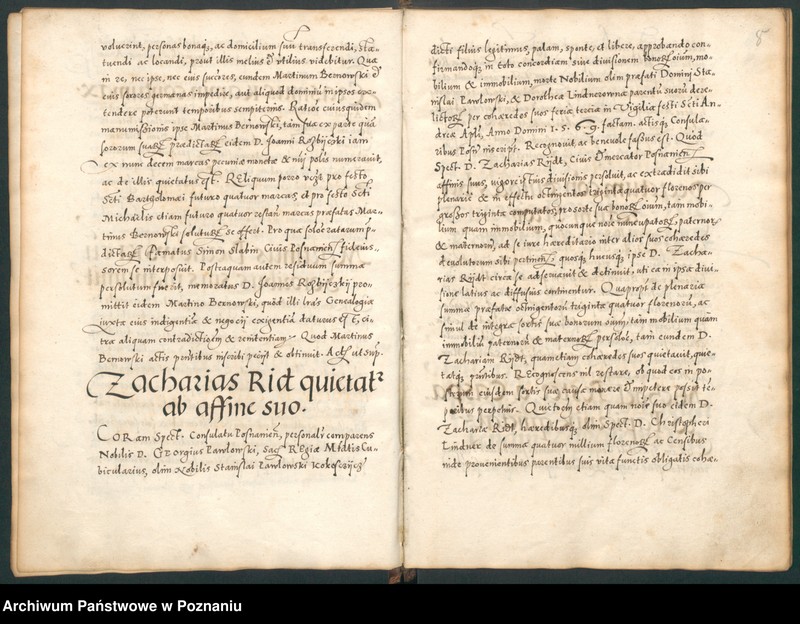 voluerint, personas bonaq3, ac domicilium suū transferendi, stæ-
tuendi ac locandi, prout illis melius et vtilius videbitur. Qua
in re, nec ipse, nec eius succres, eundem Martinum Bernowski et
eius sorores germanas impedire, aut aliquod dominiū in ipsos exe-
tendere poterunt temporibus sempiternis. Ratiõe cuiusquidem
manumissionis ipse Martinus Bernowski, tam sua ex parte quā
sororum suarꝝ prædictarꝝ eidem D. Joanni iam
ex nunc decem marcas pecuniæ monetæ & nūi polis numeravit,
ac de illis quietatus est. Reliquum porro pro festo
Scti Bartholomæi futuro quatuor marcas, et pro festo Scti
Michaelis etiam futuro quatuor marcas præfatus Mar-
tinus Bernowski solutuꝝ se offert. Pro qua solõe ratarum p-
dictaꝝ Famatus Simon Slabin Civis Posnanień fideius-
sorem se interposuit. Postquam autem residuum summæ
persolutum fuerit, memoratus D. Joannes pro-
mittit eidem Martino Bernowski, quod illi lrãs Genealogiæ
iuxta eius indigentiã & negocij exigentiã daturus est, ci-
tra aliquam contradictioem & renitentiam. Quod Martinus
Bernowski actis pñtibus inscribi petijt & obtinuit. Act. ut sup.
Zacharias Rid quietatr
ab affine suo.
CORam Spect. Consulatu Posnanień, personalr comparens
Nobilis D. Georgius Pawlowski, Sac Regiæ Mtatis Cu-
bicularius, olim Nobilis Stanislai Pawlowski
8
dicti filius legitimus, palam, sponte, et libere, approbando con-
firmandoq3 in toto concordiam sive divisionem bonoꝝ oium, mo-
bilium & immobilium, morte Nobilium olim præfati Domini Stæ-
nislai Pawlowski, & Dorotheæ Lindnerownæ parentū suorū dere-
lictoꝝ per cohæredes suos feria tercia in Vigilia festi Scti An-
dreæ Apli, Anno Domini 1.5.6.9. factam. actisq3 Consula-
ribus Posn inscript. Recognovit, ac benevole fassus est. Quod
Spect. D. Zacharias Rijdt, Civis et Mercator Posnanień
affinis suus, vigore eius divisionis persoluit, ac extradidit sibi
plenarie & in effectu octingentos triginta quatuor florenos per
grossos triginta computatos, pro sorte sua bonoꝝ oium, tam mobi-
lium quam immobilium, quocunque noĩe nuncupatoꝝ, paternoꝝ
& maternoꝝ, ad se iure hæreditario inter alios suos cohæredes
devolutorum sibi pertineñ, quosq3 hucusq3 ipse D. Zacha-
rias Rijdt circa se adservavit & detinuit, uti ea in ipsa divi-
sine latius ac diffusius continentur. Quapropt de plenaria
summa præfatæ octingentorū triginta quatuor florenorū, ac
simul de integra sortis suæ bonorum oium, tam mobilium quàm
immobiliū paternorū & maternoꝝ persolõe, tam eundem D.
Zachariam Rijdt, quam etiam cohæredes suos quietavit, quie-
tatq3 pñtibus. Recognoscens nil restare, ob quod eos in po-
sterum eiusdem sortis suæ causa monere & impetere possit tẽ-
poribus perpetuis. Quietom etiam quam noĩe suo eidem D.
Zachariæ Ridt, hæredibusq3 olim Spect. D. Christopheri
Lindner de summa quatuor millium florenoꝝ ac Censibus
inde provenientibus parentibus suis vita functis obligatis cohæ-
Archiwum Państwowe w Poznaniu